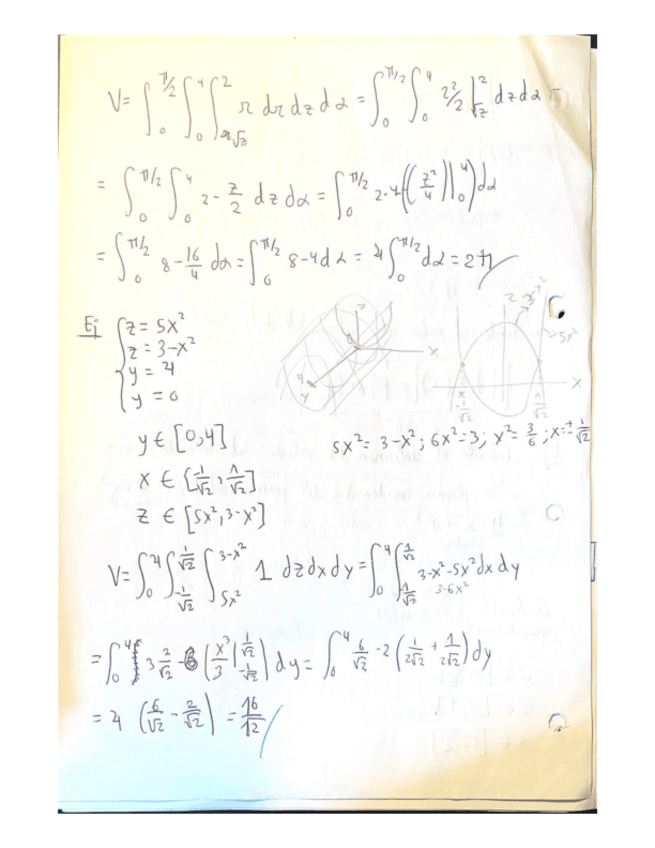 V= ∫₀^{π/2} ∫₀^4 ∫_{√z}^2 r dr dz dα = ∫₀^{π/2} ∫₀^4 r²/2 |_{√z}^2 dz dα
= ∫₀^{π/2} ∫₀^4 2 - z/2 dz dα = ∫₀^{π/2} 2·4 - (z²/4 |₀^4) dα
= ∫₀^{π/2} 8 - 16/4 dα = ∫₀^{π/2} 8-4 dα = 4 ∫₀^{π/2} dα = 2π
Ej { z = 5x²
z = 3-x²
y = 4
y = 0
z
4
y
x
3-x²
5x²
x
-1/√2
1/√2
y ∈ [0,4]
5x² = 3-x² ; 6x² = 3 ; x² = 3/6 ; x = ± 1/√2
x ∈ [-1/√2, 1/√2]
z ∈ [5x², 3-x²]
V= ∫₀^4 ∫_{-1/√2}^{1/√2} ∫_{5x²}^{3-x²} 1 dz dx dy = ∫₀^4 ∫_{-1/√2}^{1/√2} 3-x²-5x² dx dy
3-6x²
= ∫₀^4 3 2/√2 - 6 (x³/3 |_{-1/√2}^{1/√2}) dy = ∫₀^4 6/√2 - 2 (1/2√2 + 1/2√2) dy
= 4 (6/√2 - 2/√2) = 16/√2